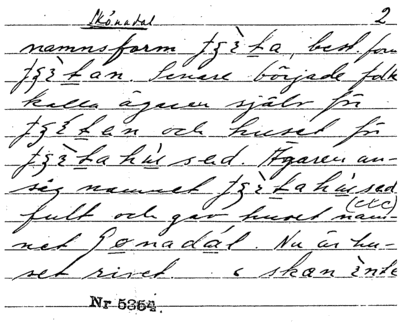 Skönadal 2
namnsform tʃɛ̀ta, best. form
tʃɛ̀tan. Senare började folk
kalla ägaren själv för
tʃɛ́ten och huset för
tʃɛ̀tahùsəd. Ägaren an-
såg namnet tʃɛ̀tahùsəd
(ctc)
fult och gav huset nam-
net ʃønadál. Nu är hu-
set rivet.
Nr 5354.